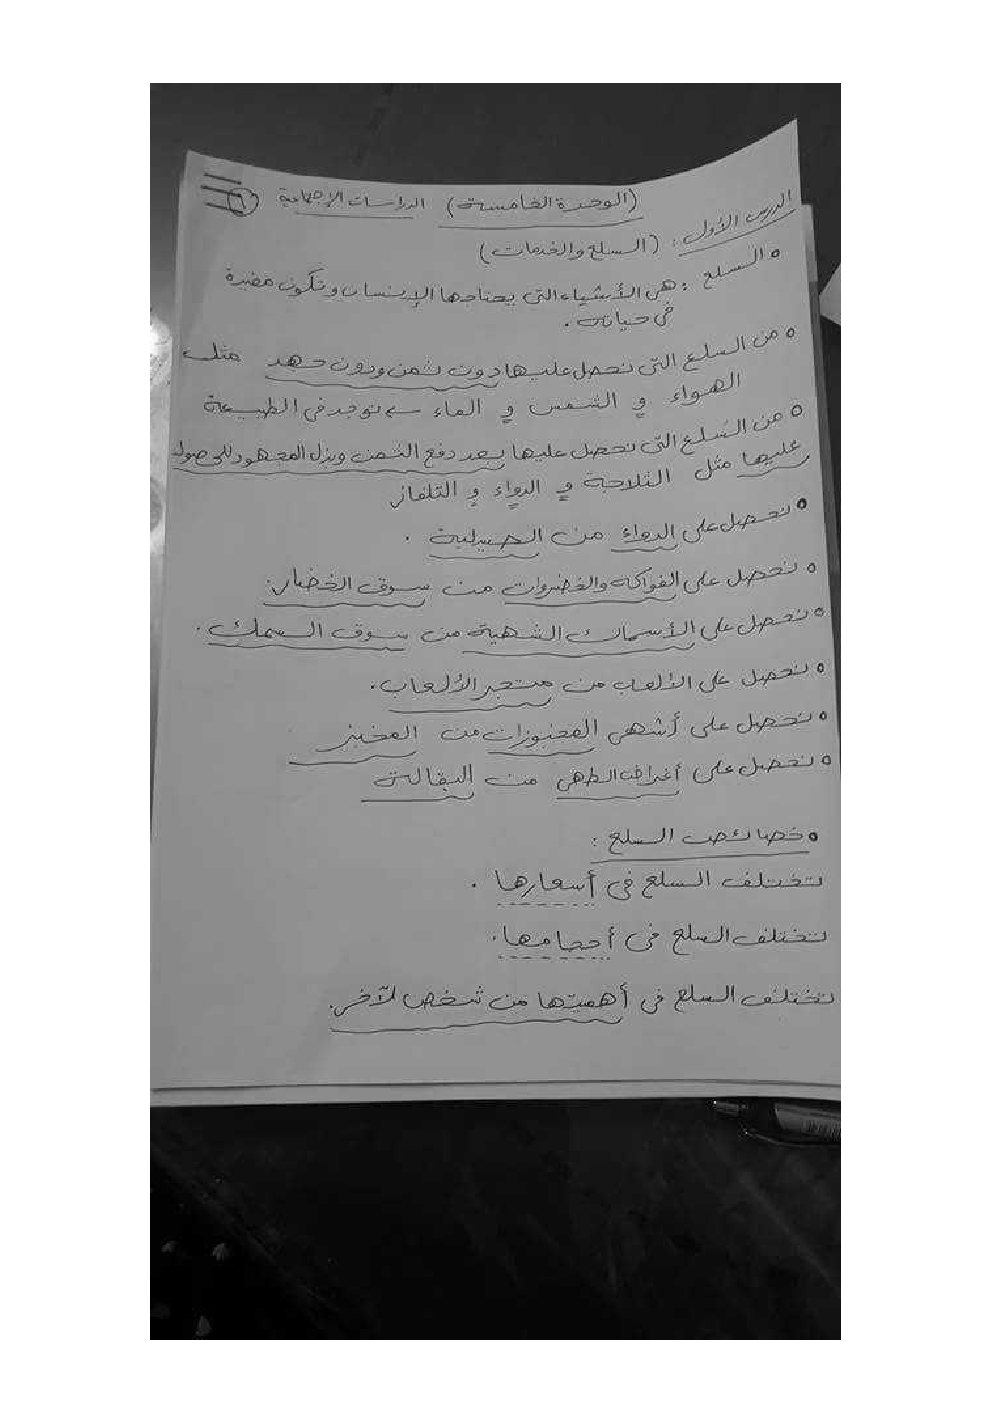 (الوحدة الخامسة) الدراسات الإجتماعية ١
الدرس الأول: (السلع والخدمات)
السلع: هى الأشياء التى يحتاجها الإنسان وتكون مفيدة
فى حياته.
من السلع التى نحصل عليها دون ثمن ودون جهد مثل
الهواء و الشمس و الماء توجد فى الطبيعة
من السلع التى نحصل عليها بعد دفع الثمن وبذل المجهود للحصول
عليها مثل الثلاجة و الدواء و التلفاز
نحصل على الدواء من الصيدلية.
نحصل على الفواكه والخضروات من سوق الخضار.
نحصل على الأسماك الشهية من سوق السمك.
نحصل على الألعاب من متجر الألعاب.
نحصل على أشهى المخبوزات من المخبز
نحصل على أغراض الطهى من البقالة
خصائص السلع:
تختلف السلع فى أسعارها.
تختلف السلع فى أحجامها.
تختلف السلع فى أهميتها من شخص لآخر.